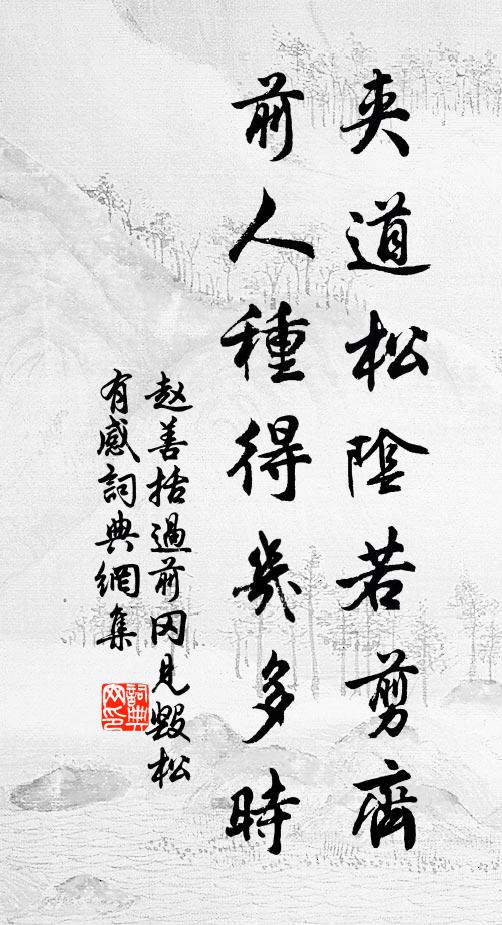 夹道松陰若剪齊
前人種得幾多時
赵善括過前冈見毀松
有感詞典網集
詞典网印